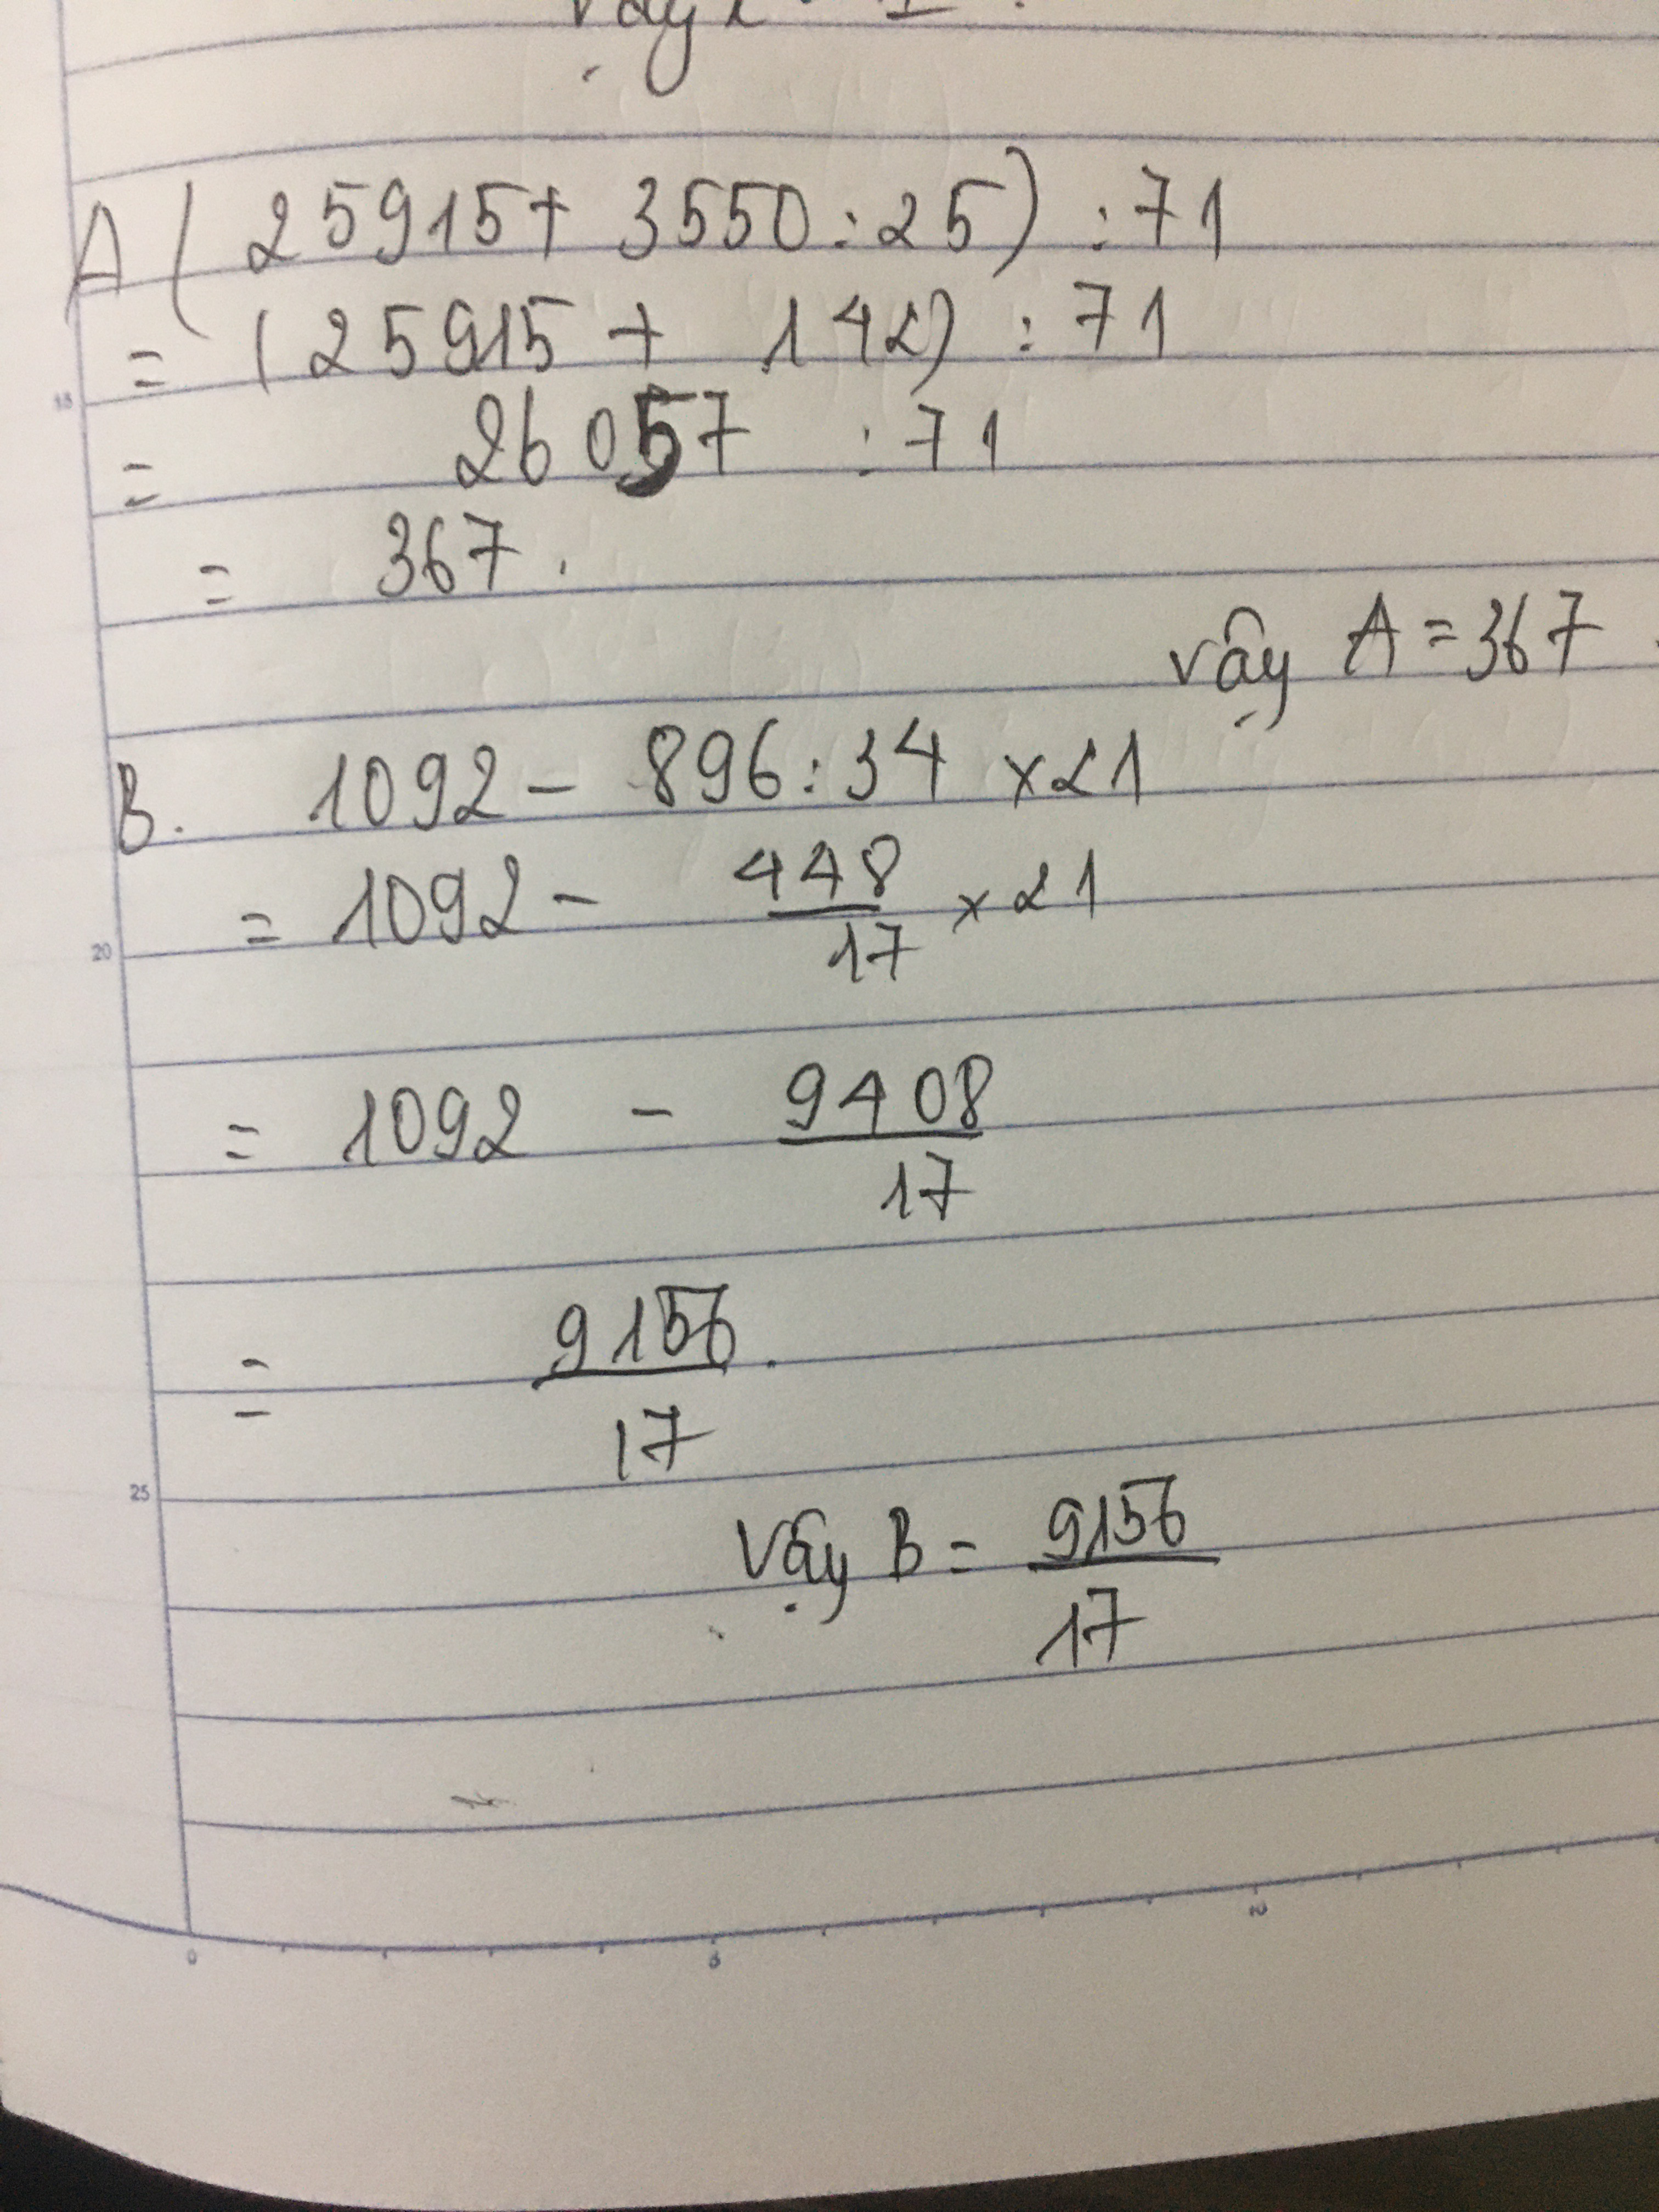 A ( 25915 + 3550 : 25 ) : 71
= ( 25915 + 142 ) : 71
= 26057 : 71
= 367 .
vậy A = 367 .
B. 1092 - 896 : 34 x 21
= 1092 - 448/17 x 21
= 1092 - 9408/17
= 9156/17 .
Vậy B = 9156/17
15
20
25